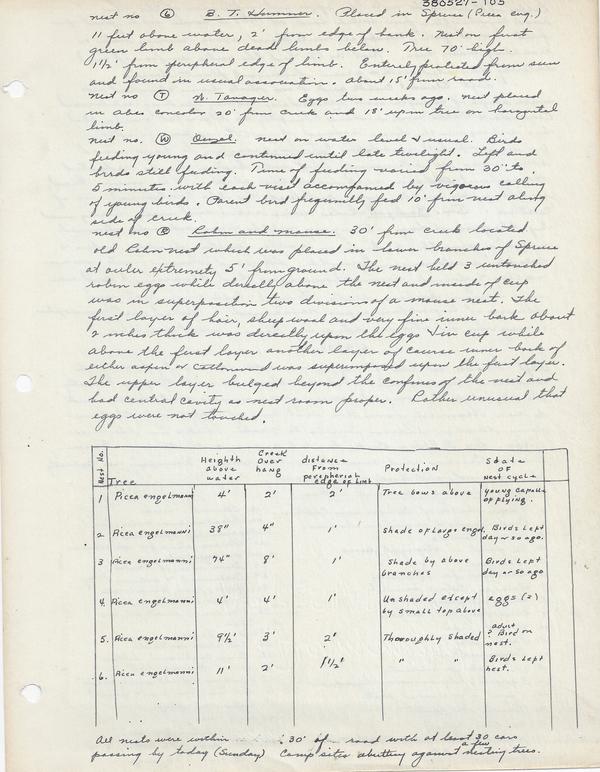 380527-105
nest no (6) B. T. Hummer. Placed in Spruce (Picea eng.)
11 feet above water, 2' from edge of bank. Nest on first
green limb above dead limbs below. Tree 70' high.
1 1/2' from peripheral edge of limb. Entirely protected from sun
and found in usual association. About 15' from road.
Nest no (T) W. Tanager. Eggs two weeks ago. Nest placed
in abies concolor 20' from creek and 18' up in tree on horizontal
limb.
nest no. (W) Ouzel. nest on water level & usual. Birds
feeding young and continued until late twilight. Left and
birds still feeding. Time of feeding varied from 30" to
5 minutes with each visit accompanied by vigorous calling
of young birds. Parent bird frequently fed 10' from nest along
side of creek.
nest no (R) Robin and mouse. 30' from creek located
old Robin nest which was placed in lower branches of Spruce
at outer extremity 5' from ground. The nest held 3 untouched
robin eggs while directly above the nest and inside of cup
was in superposition two divisions of a mouse nest. The
first layer of hair, sheep wool and very fine inner bark about
2 inches thick was directly upon the eggs & in cup while
above the first layer another layer of course inner bark of
either aspen or cottonwood was superimposed upon the first layer.
The upper layer bulged beyond the confines of the nest and
had central cavity as nest room proper. Rather unusual that
eggs were not touched.
Nest No. Tree Heighth above water Creek Over hang distance From peripherial edge of limb Protection State of Nest cycle
1 Picea engelmanni 4' 2' 2' Tree bows above young capable of flying.
2 Picea engelmanni 38" 4" 1' Shade of large engel. Birds Left day or so ago.
3 Picea engelmanni 74" 8' 1' Shade by above branches Birds Left day or so ago
4. Picea engelmanni 4' 4' 1' Unshaded except by small top above eggs (2)
5. Picea engelmanni 9 1/2' 3' 2' Thoroughly shaded adult ? Bird on nest.
6. Picea engelmanni 11' 2' 1 1/2' " " Birds Left nest.
All nests were within 30' of road with at least 30 cars
passing by today (Sunday) Camp sites abutting against a few nesting trees.